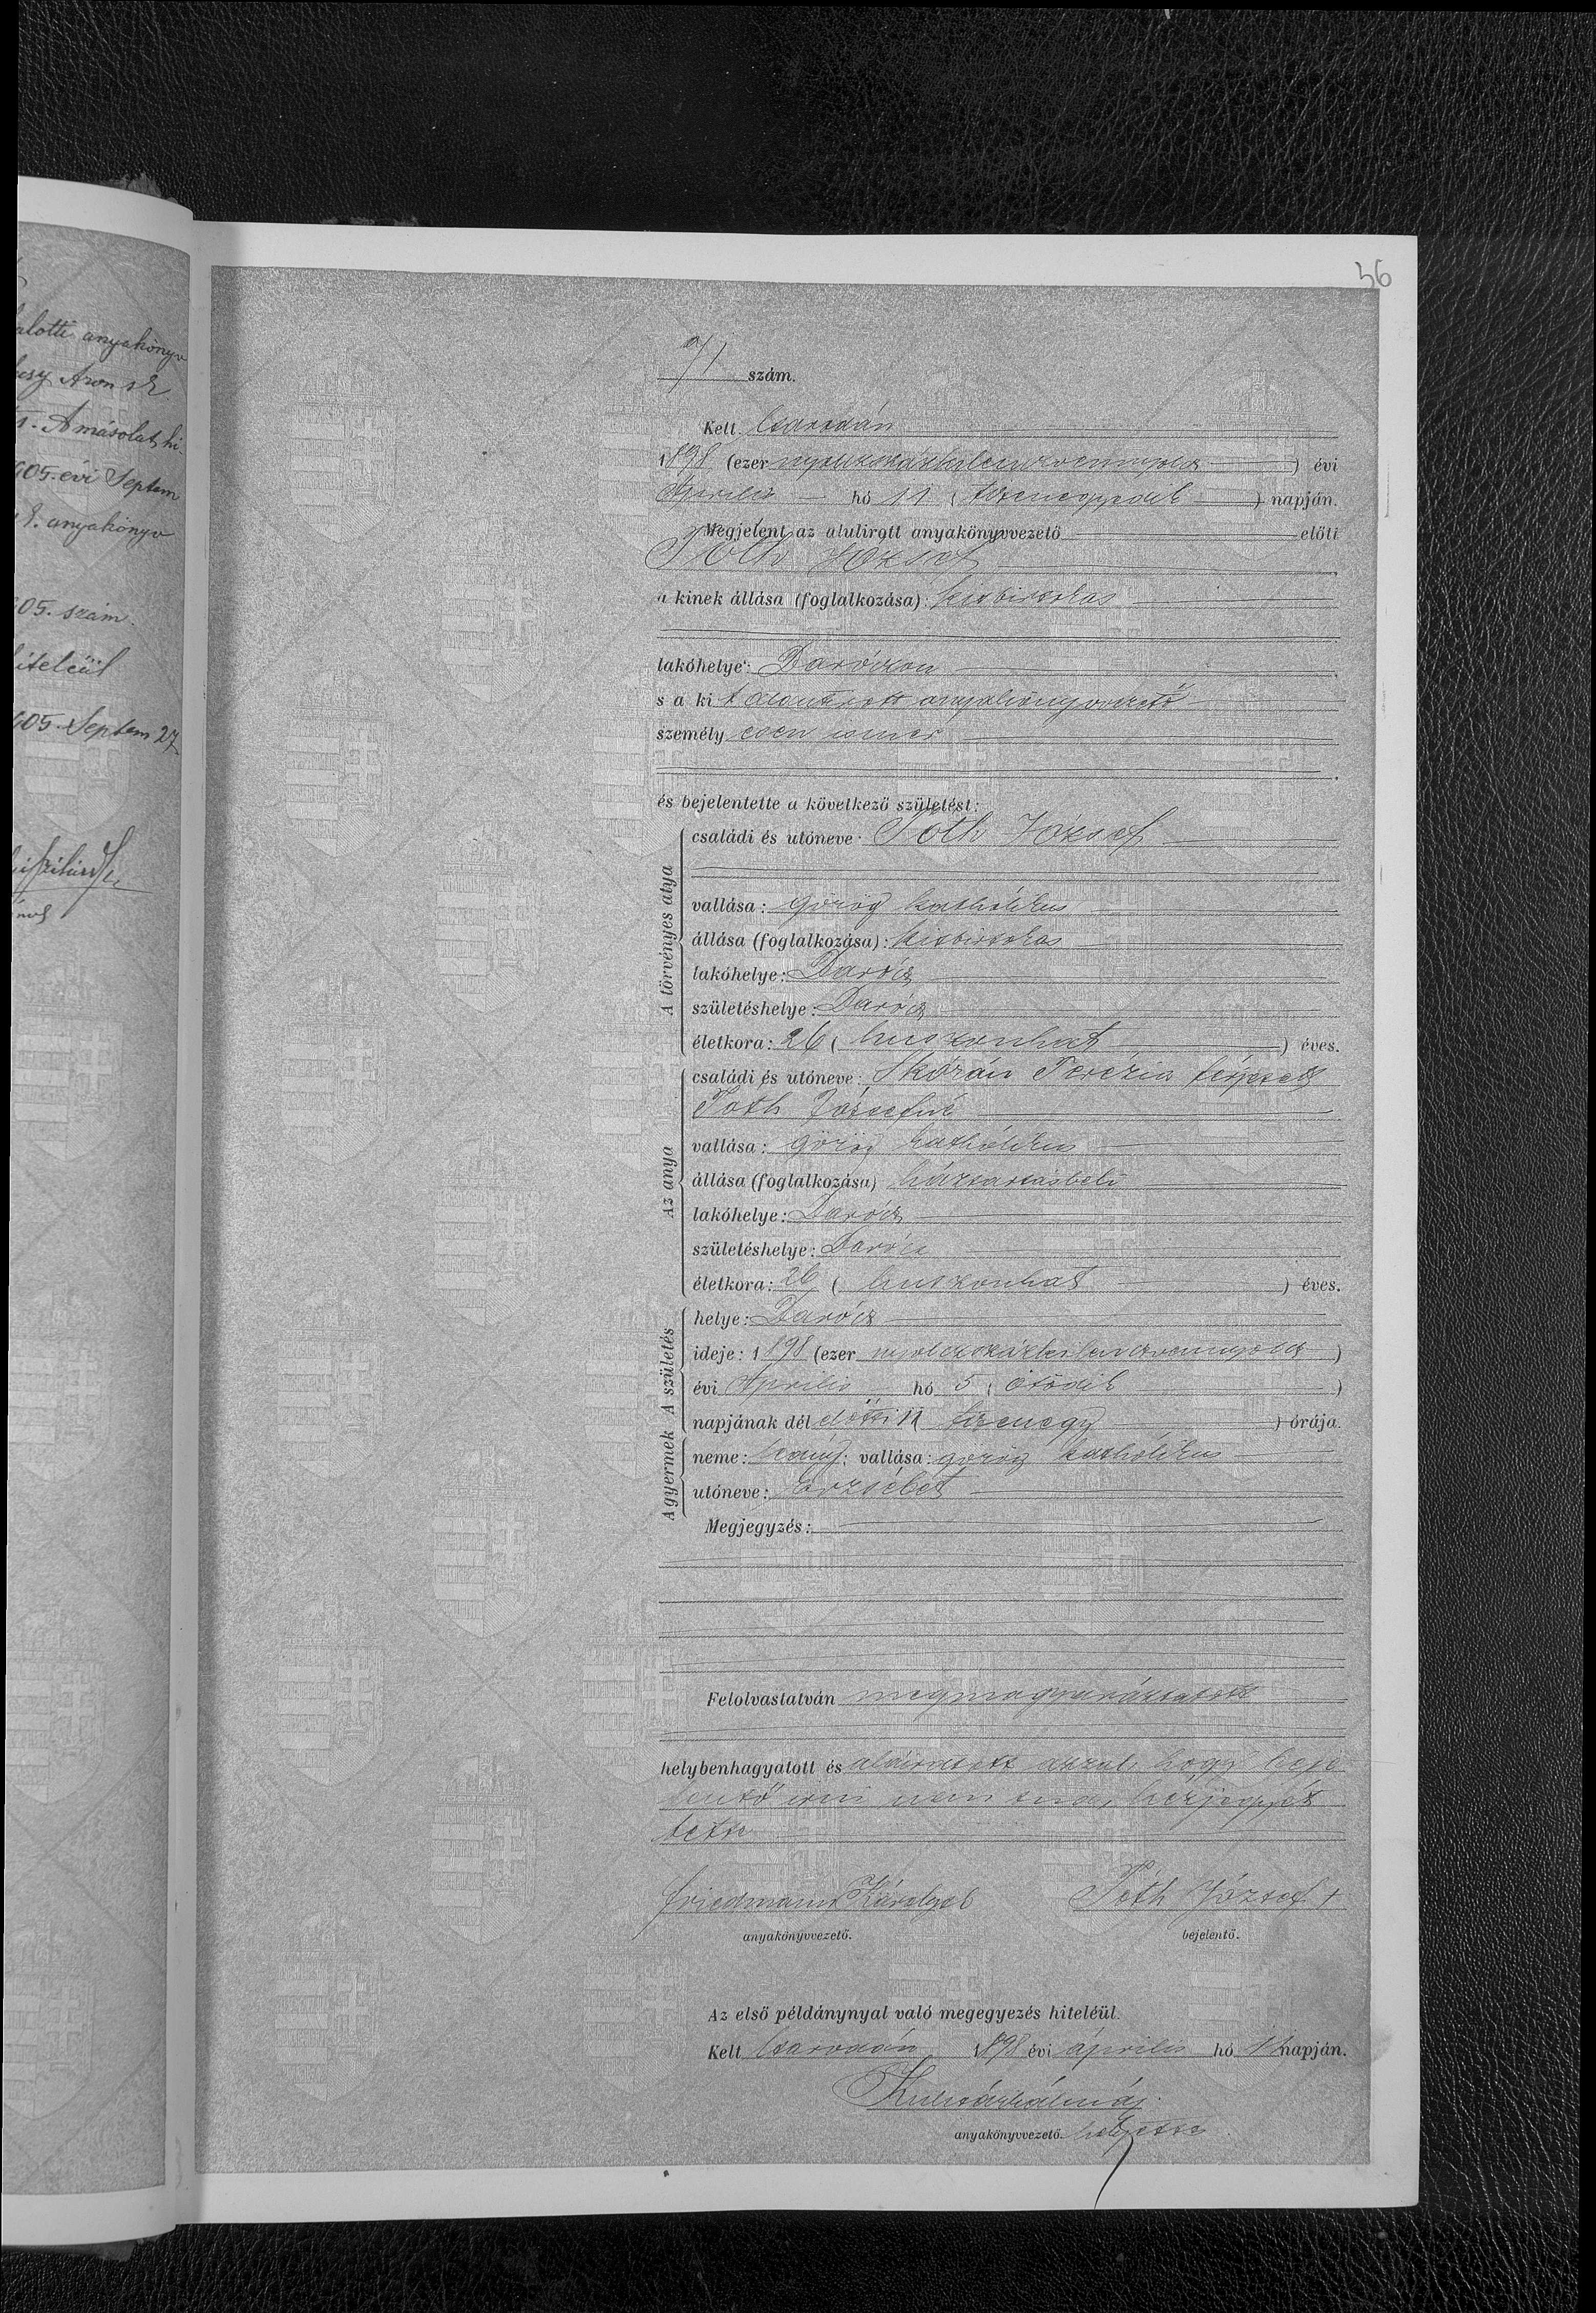 56
71 szám.
Kelt Csarodán
1898 (ezer nyolczszázkilenczvennyolcz) évi
Április hó 11 (tizenegyedik) napján.
Megjelent az alulirott anyakönyvvezető előtt
Tóth József
a kinek állása (foglalkozása): kisbirtokos
lakóhelye: Daróczon
s a ki t alantirott anyakönyvvezető
személy esen ismer
és bejelentette a következő születést:
A törvényes atya
családi és utóneve: Tóth József
vallása: görög katholikus
állása (foglalkozása): kisbirtokos
lakóhelye: Darócz
születéshelye: Darócz
életkora: 26 (huszonhat) éves.
Az anya
családi és utóneve: Skórán Terézia férjezett
Toth Józsefné
vallása: görög katholikus
állása (foglalkozása) háztartásbeli
lakóhelye: Darócz
születéshelye: Darócz
életkora: 26 (huszonhat) éves.
A születés
helye: Darócz
ideje: 1898 (ezer nyolczszázkilenczvennyolcz)
évi Április hó 5 (ötödik)
napjának dél előtti 11 (tizenegy) órája.
A gyermek
neme: leány; vallása: görög katholikus
utóneve: Erzsébet
Megjegyzés:
Felolvastatván megmagyaráztatott
helybenhagyatott és aláiratott azzal, hogy beje
lentő irni nem tud, kézjegyét
tette
Friedmann Károly Tóth József +
anyakönyvvezető. bejelentő.
Az első példánynyal való megegyezés hiteléül.
Kelt Csarodán 1898 évi április hó 11 napján.
anyakönyvvezető helyettes
alotti anyakönyv
Áron sk
A másolat hi
905. évi Septem
anyakönyv
905. szám.
iteléül
905. Septem 27